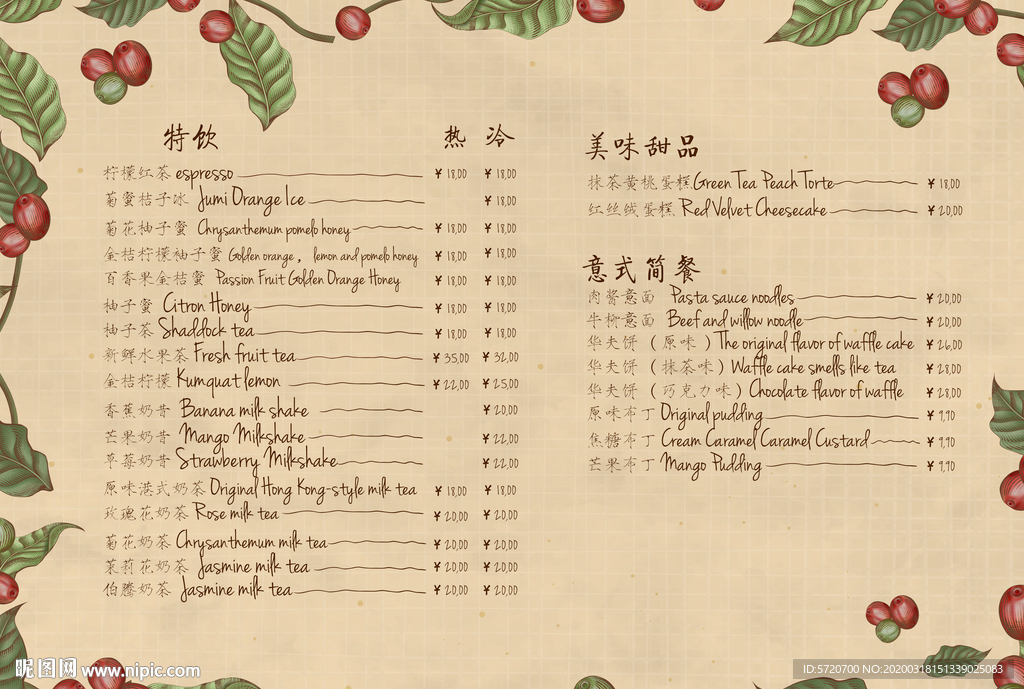 特饮 热 冷
柠檬红茶 espresso ¥ 18,00 ¥ 18,00
菊蜜桔子冰 Jumi Orange Ice ¥ 18,00
菊花柚子蜜 Chrysanthemum pomelo honey ¥ 18,00 ¥ 18,00
金桔柠檬柚子蜜 Golden orange, lemon and pomelo honey ¥ 18,00 ¥ 18,00
百香果金桔蜜 Passion Fruit Golden Orange Honey ¥ 18,00 ¥ 18,00
柚子蜜 Citron Honey ¥ 18,00 ¥ 18,00
柚子茶 Shaddock tea ¥ 18,00 ¥ 18,00
新鲜水果茶 Fresh fruit tea ¥ 35,00 ¥ 32,00
金桔柠檬 Kumquat lemon ¥ 22,00 ¥ 25,00
香蕉奶昔 Banana milk shake ¥ 20,00
芒果奶昔 Mango Milkshake ¥ 22,00
草莓奶昔 Strawberry Milkshake ¥ 22,00
原味港式奶茶 Original Hong Kong-style milk tea ¥ 18,00 ¥ 18,00
玫瑰花奶茶 Rose milk tea ¥ 20,00 ¥ 20,00
菊花奶茶 Chrysanthemum milk tea ¥ 20,00 ¥ 20,00
茉莉花奶茶 Jasmine milk tea ¥ 20,00 ¥ 20,00
伯爵奶茶 Jasmine milk tea ¥ 20,00 ¥ 20,00
美味甜品
抹茶黄桃蛋糕 Green Tea Peach Torte ¥ 18,00
红丝绒蛋糕 Red Velvet Cheesecake ¥ 20,00
意式简餐
肉酱意面 Pasta sauce noodles ¥ 20,00
牛柳意面 Beef and willow noodle ¥ 20,00
华夫饼（原味）The original flavor of waffle cake ¥ 26,00
华夫饼（抹茶味）Waffle cake smells like tea ¥ 28,00
华夫饼（巧克力味）Chocolate flavor of waffle ¥ 28,00
原味布丁 Original pudding ¥ 9,90
焦糖布丁 Cream Caramel Caramel Custard ¥ 9,90
芒果布丁 Mango Pudding ¥ 9,90
昵图网 www.nipic.com
ID:5720700 NO:20200318151339025083